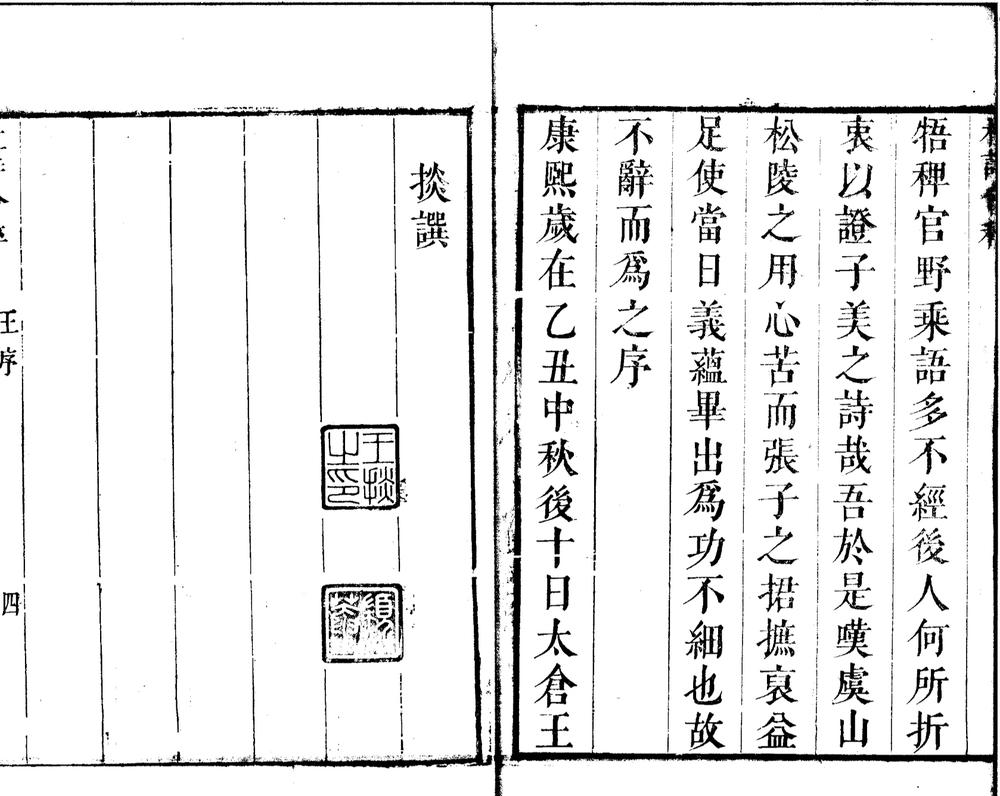 牾稗官野乘語多不經後人何所折
衷以證子美之詩哉吾於是嘆虞山
松陵之用心苦而張子之捃摭裒益
足使當日義蘊畢出爲功不細也故
不辭而爲之序
康熙歲在乙丑中秋後十日太倉王
掞譔
王掞之印
王序
四